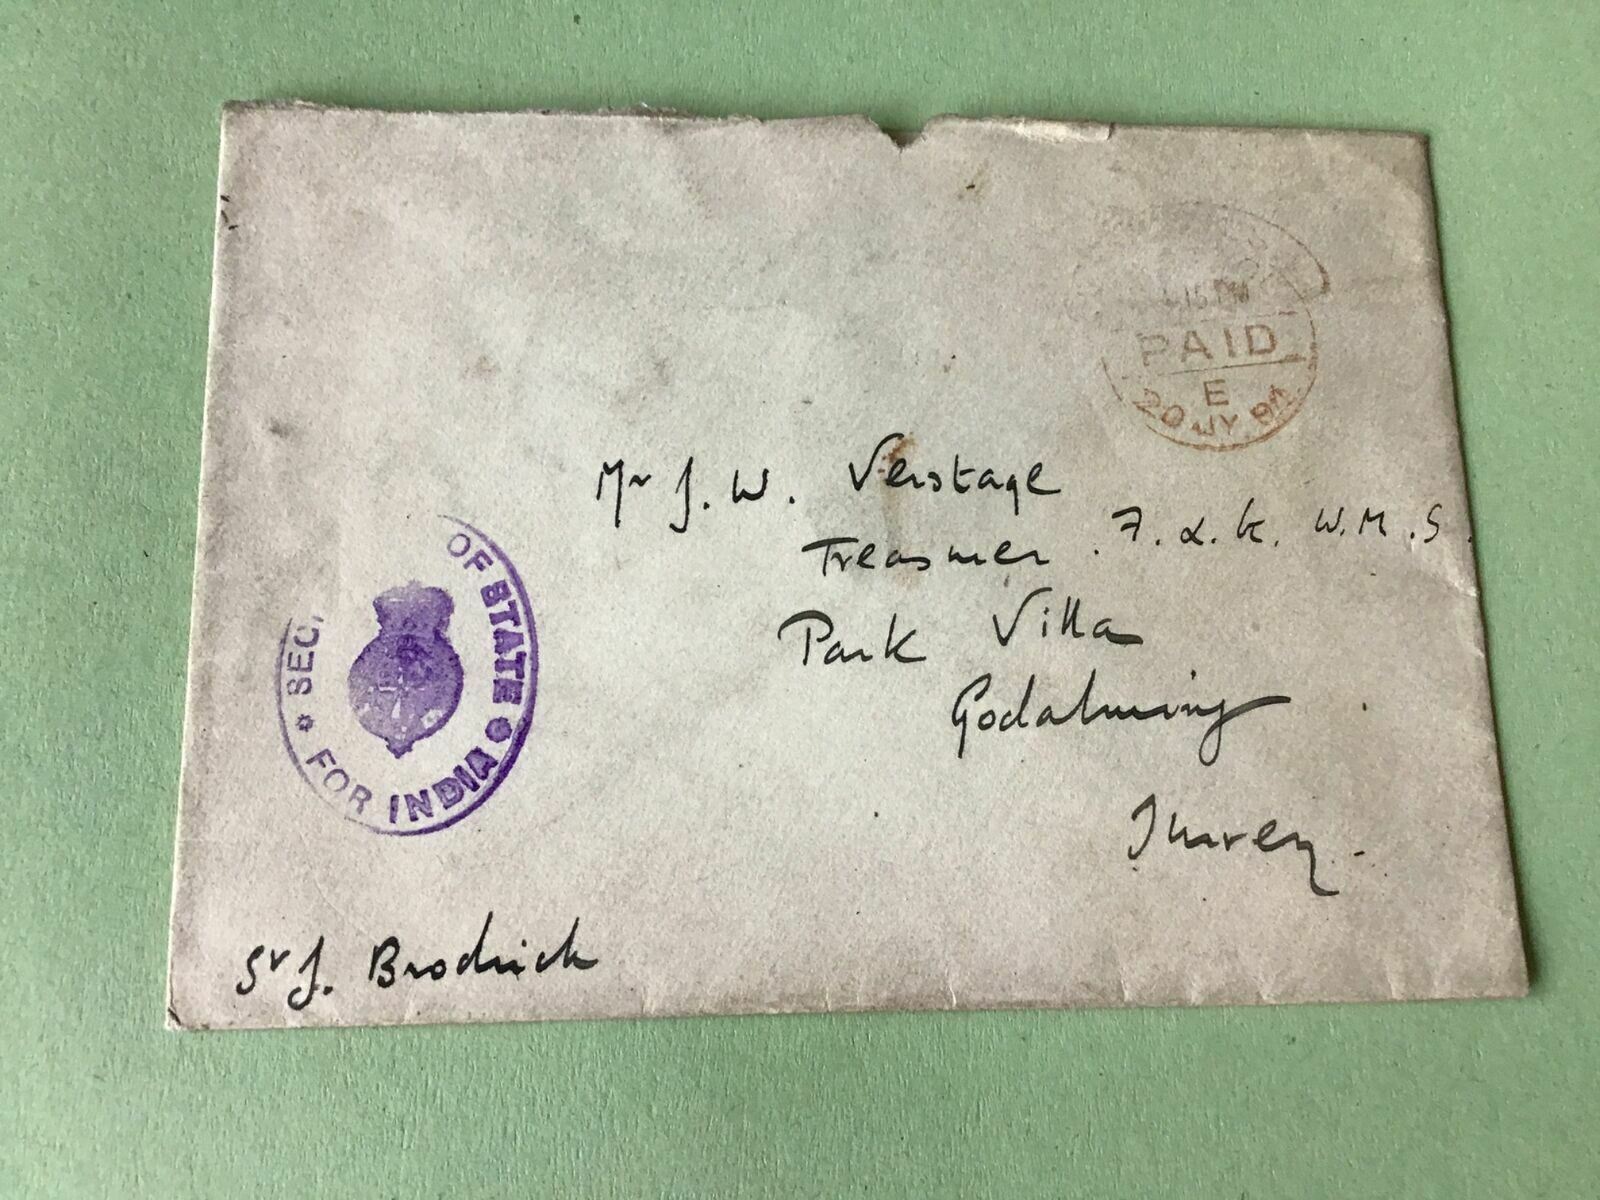 15 PM
PAID
E
20 JY 04
Mr J. W. Verstage
Treasurer . F. & K. W. M. S.
Park Villa
Godalming
Surrey.
SEC OF STATE
FOR INDIA
St J. Brodrick